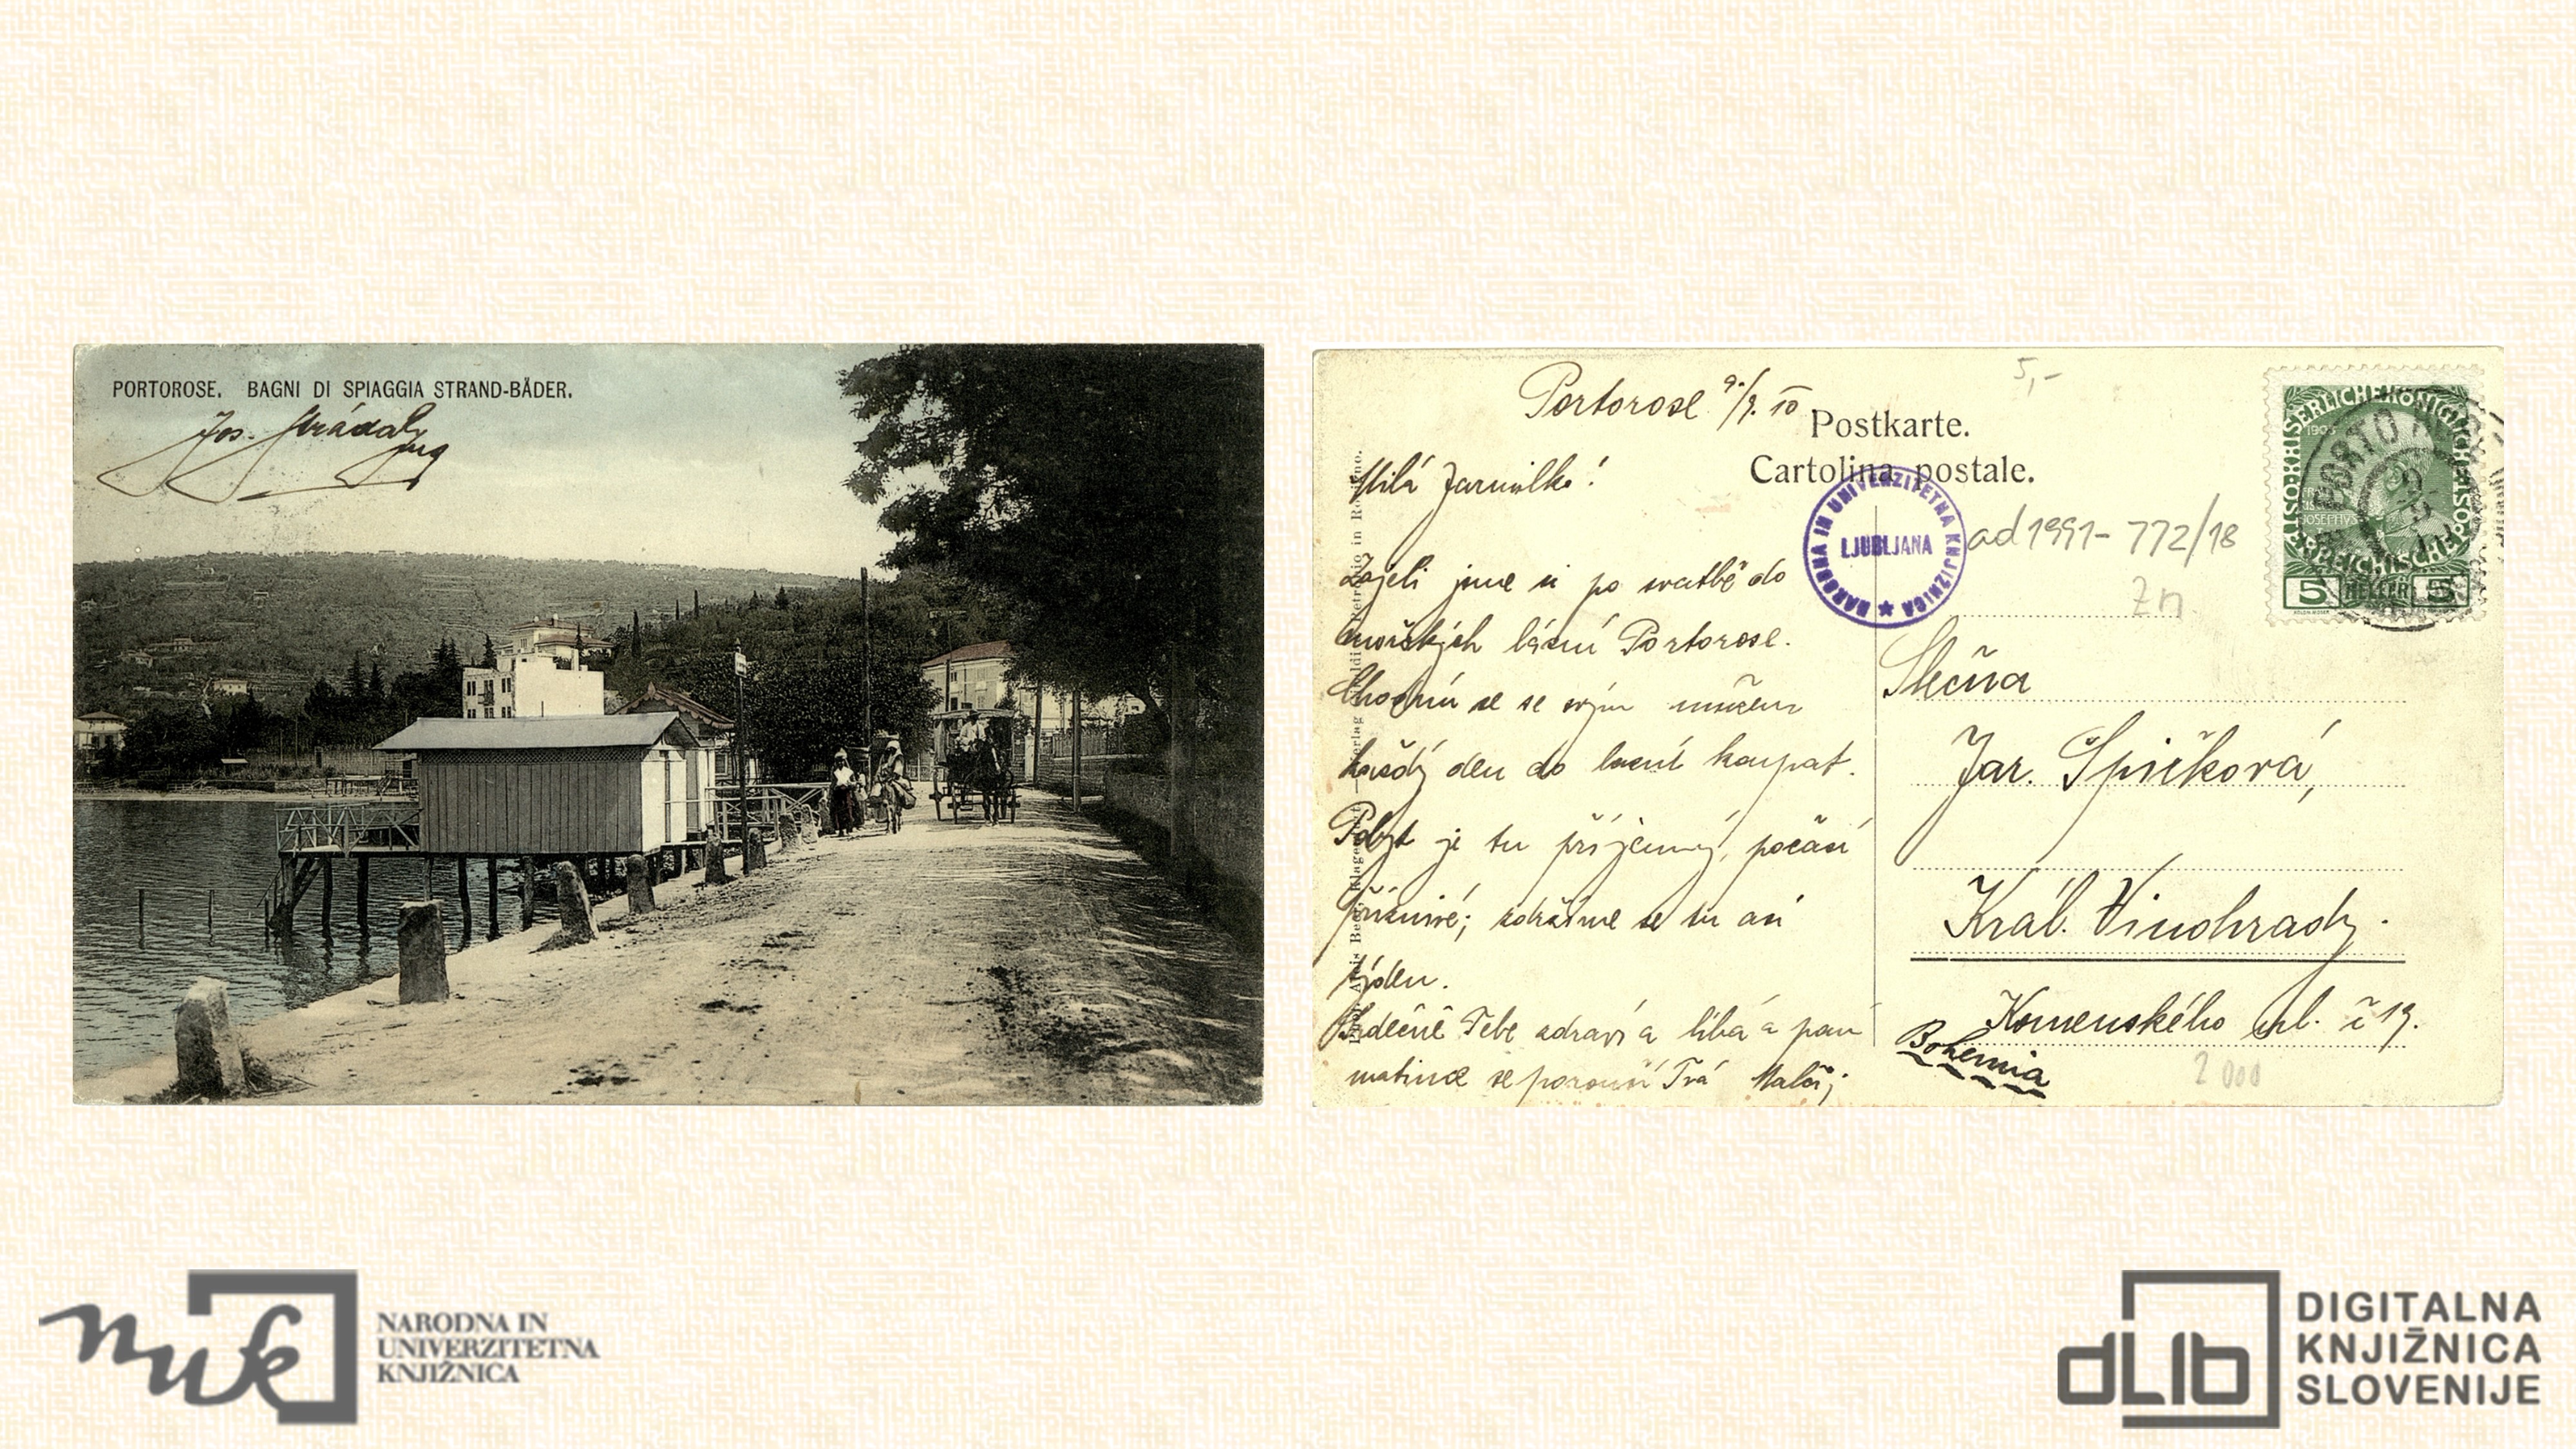 PORTOROSE. BAGNI DI SPIAGGIA STRAND-BÄDER.
Jos. Strádal
Portorose 9./9. 10
Postkarte.
Cartolina postale.
5,-
Milá Jarmilko!
Zajeli jsme si po svatbě do
mořských lázní Portorose.
Chodím se se svým mužem
každý den do lázní koupat.
Pobyt je tu příjemný, počasí
příznivé; zdržíme se tu asi
týden.
Srdečně Tebe zdraví a líbá a paní
matince se poroučí Tvá
NARODNA IN UNIVERZITETNA KNJIŽNICA
LJUBLJANA
ad 1991-772/18
Zn
KAISERLICHE KÖNIGLICHE
ÖSTERREICHISCHE POST
5 HELLER 5
Slečna
Jar. Špičková,
Král. Vinohrady.
Komenského ul. č 19.
Bohemia
2 000
nuk
NARODNA IN
UNIVERZITETNA
KNJIŽNICA
dLib
DIGITALNA
KNJIŽNICA
SLOVENIJE